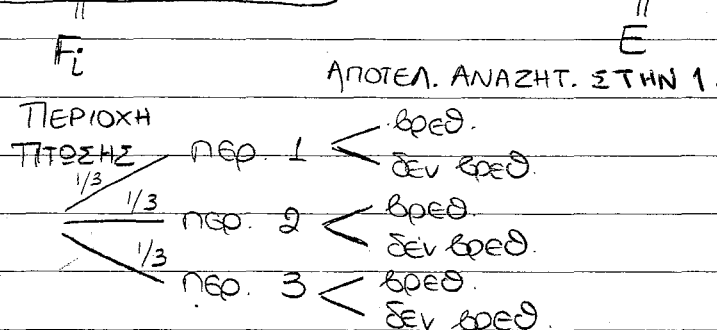 Fi
E
ΑΠΟΤΕΛ. ΑΝΑΖΗΤ. ΣΤΗΝ 1.
ΠΕΡΙΟΧΗ
ΠΤΩΣΗΣ
1/3 περ. 1 βρεθ.
δεν βρεθ.
1/3 περ. 2 βρεθ.
δεν βρεθ.
1/3 περ. 3 βρεθ.
δεν βρεθ.